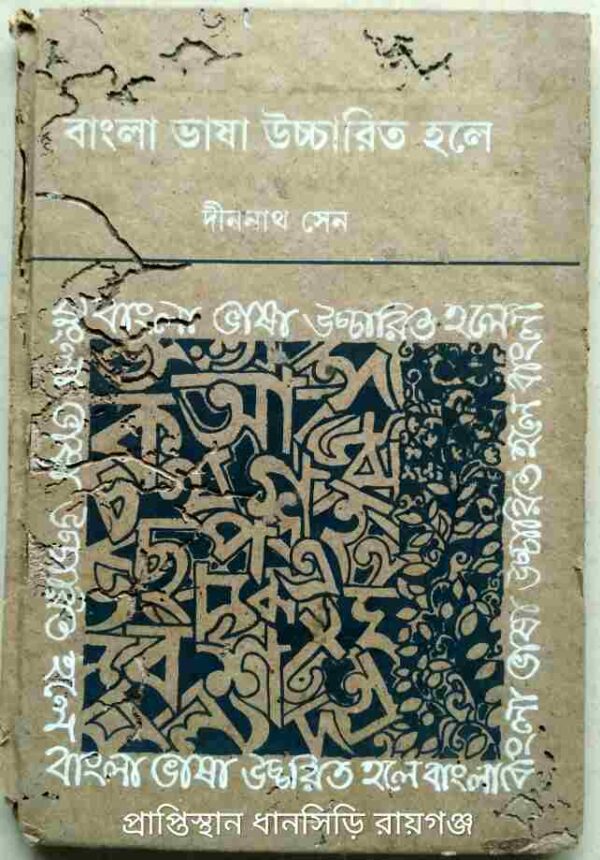 বাংলা ভাষা উচ্চারিত হলে
দীননাথ সেন
বাংলা ভাষা উচ্চারিত হলে
বাংলা ভাষা উচ্চারিত হলে বাংলা
বাংলা ভাষা উচ্চারিত হলে
বাংলা ভাষা উচ্চারিত হলে বাংলা
ক আ
প
ছ
এ
প্রাপ্তিস্থান ধানসিড়ি রায়গঞ্জ